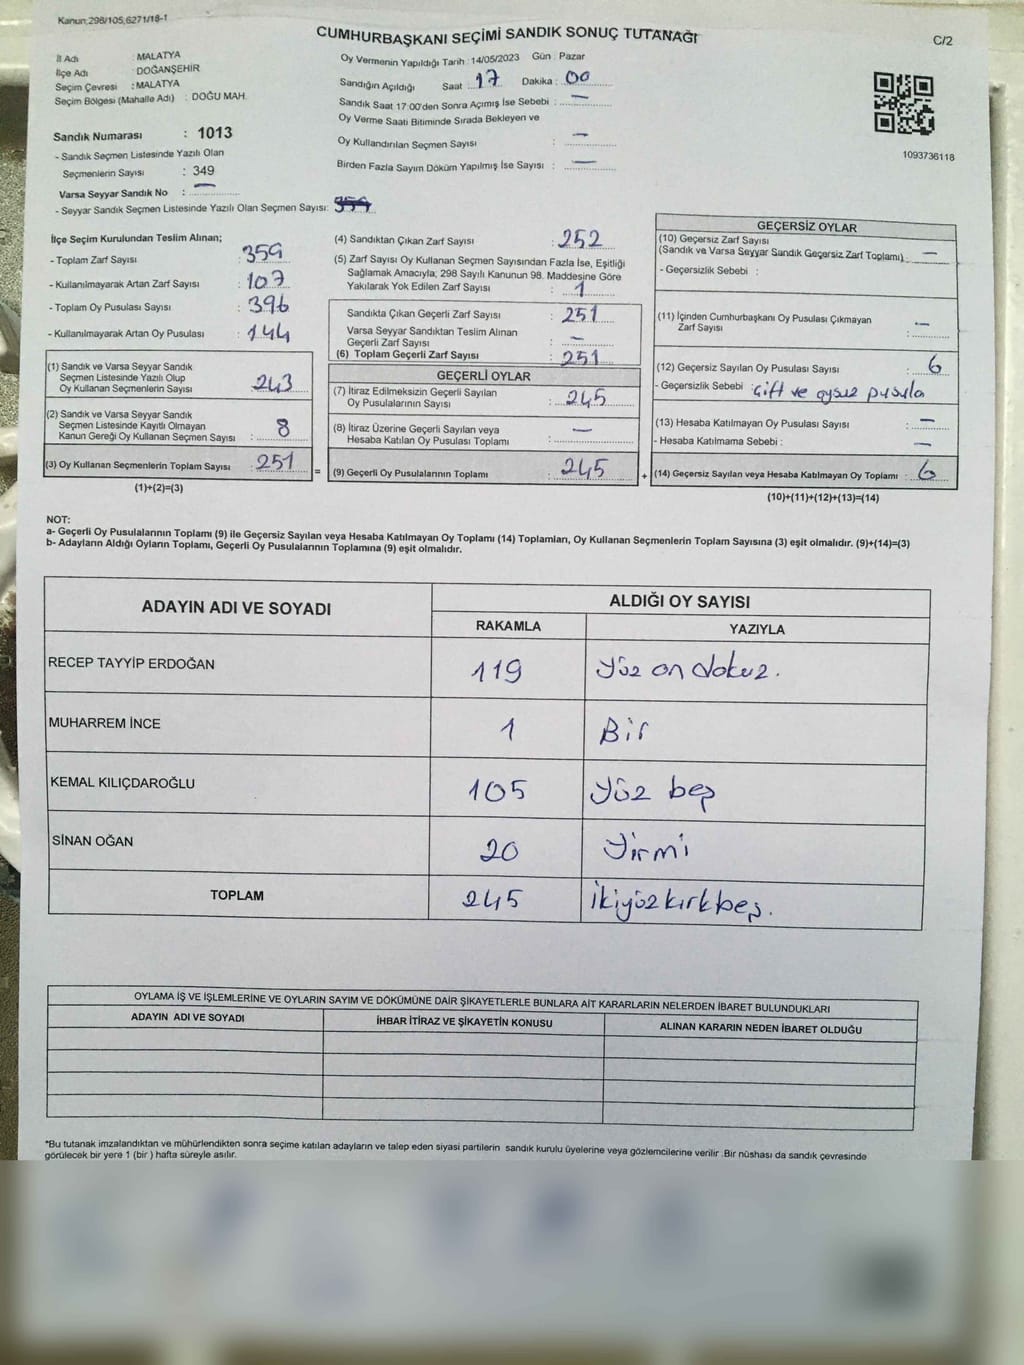 Kanun;298/105,6271/18-1
CUMHURBAŞKANI SEÇİMİ SANDIK SONUÇ TUTANAĞI
C/2
İl Adı : MALATYA
İlçe Adı : DOĞANŞEHİR
Seçim Çevresi : MALATYA
Seçim Bölgesi (Mahalle Adı) : DOĞU MAH.
Sandık Numarası : 1013
- Sandık Seçmen Listesinde Yazılı Olan
Seçmenlerin Sayısı : 349
Varsa Seyyar Sandık No : —
- Seyyar Sandık Seçmen Listesinde Yazılı Olan Seçmen Sayısı:
Oy Vermenin Yapıldığı Tarih : 14/05/2023 Gün : Pazar
Sandığın Açıldığı Saat : 17 Dakika : 00
Sandık Saat 17:00'den Sonra Açımış İse Sebebi : —
Oy Verme Saati Bitiminde Sırada Bekleyen ve
Oy Kullandırılan Seçmen Sayısı : —
Birden Fazla Sayım Döküm Yapılmış İse Sayısı : —
1093736118
İlçe Seçim Kurulundan Teslim Alınan;
- Toplam Zarf Sayısı : 359
- Kullanılmayarak Artan Zarf Sayısı : 107
- Toplam Oy Pusulası Sayısı : 396
- Kullanılmayarak Artan Oy Pusulası : 144
(1) Sandık ve Varsa Seyyar Sandık
Seçmen Listesinde Yazılı Olup
Oy Kullanan Seçmenlerin Sayısı : 243
(2) Sandık ve Varsa Seyyar Sandık
Seçmen Listesinde Kayıtlı Olmayan
Kanun Gereği Oy Kullanan Seçmen Sayısı : 8
(3) Oy Kullanan Seçmenlerin Toplam Sayısı : 251
(1)+(2)=(3)
(4) Sandıktan Çıkan Zarf Sayısı : 252
(5) Zarf Sayısı Oy Kullanan Seçmen Sayısından Fazla İse, Eşitliği
Sağlamak Amacıyla; 298 Sayılı Kanunun 98. Maddesine Göre
Yakılarak Yok Edilen Zarf Sayısı : 1
Sandıkta Çıkan Geçerli Zarf Sayısı : 251
Varsa Seyyar Sandıktan Teslim Alınan
Geçerli Zarf Sayısı : —
(6) Toplam Geçerli Zarf Sayısı : 251
GEÇERLİ OYLAR
(7) İtiraz Edilmeksizin Geçerli Sayılan
Oy Pusulalarının Sayısı : 245
(8) İtiraz Üzerine Geçerli Sayılan veya
Hesaba Katılan Oy Pusulası Toplamı : —
= (9) Geçerli Oy Pusulalarının Toplamı : 245 +
GEÇERSİZ OYLAR
(10) Geçersiz Zarf Sayısı
(Sandık ve Varsa Seyyar Sandık Geçersiz Zarf Toplamı) : —
- Geçersizlik Sebebi :
(11) İçinden Cumhurbaşkanı Oy Pusulası Çıkmayan
Zarf Sayısı : —
(12) Geçersiz Sayılan Oy Pusulası Sayısı : 6
- Geçersizlik Sebebi : Çift ve oysuz pusula
(13) Hesaba Katılmayan Oy Pusulası Sayısı : —
- Hesaba Katılmama Sebebi : —
(14) Geçersiz Sayılan veya Hesaba Katılmayan Oy Toplamı : 6
(10)+(11)+(12)+(13)=(14)
NOT:
a- Geçerli Oy Pusulalarının Toplamı (9) ile Geçersiz Sayılan veya Hesaba Katılmayan Oy Toplamı (14) Toplamları, Oy Kullanan Seçmenlerin Toplam Sayısına (3) eşit olmalıdır. (9)+(14)=(3)
b- Adayların Aldığı Oyların Toplamı, Geçerli Oy Pusulalarının Toplamına (9) eşit olmalıdır.
ADAYIN ADI VE SOYADI
ALDIĞI OY SAYISI
RAKAMLA YAZIYLA
RECEP TAYYİP ERDOĞAN 119 Yüz on dokuz.
MUHARREM İNCE 1 Bir
KEMAL KILIÇDAROĞLU 105 Yüz beş
SİNAN OĞAN 20 Yirmi
TOPLAM 245 İkiyüzkırkbeş.
OYLAMA İŞ VE İŞLEMLERİNE VE OYLARIN SAYIM VE DÖKÜMÜNE DAİR ŞİKAYETLERLE BUNLARA AİT KARARLARIN NELERDEN İBARET BULUNDUKLARI
ADAYIN ADI VE SOYADI İHBAR İTİRAZ VE ŞİKAYETİN KONUSU ALINAN KARARIN NEDEN İBARET OLDUĞU
*Bu tutanak imzalandıktan ve mühürlendikten sonra seçime katılan adayların ve talep eden siyasi partilerin sandık kurulu üyelerine veya gözlemcilerine verilir .Bir nüshası da sandık çevresinde
görülecek bir yere 1 (bir ) hafta süreyle asılır.